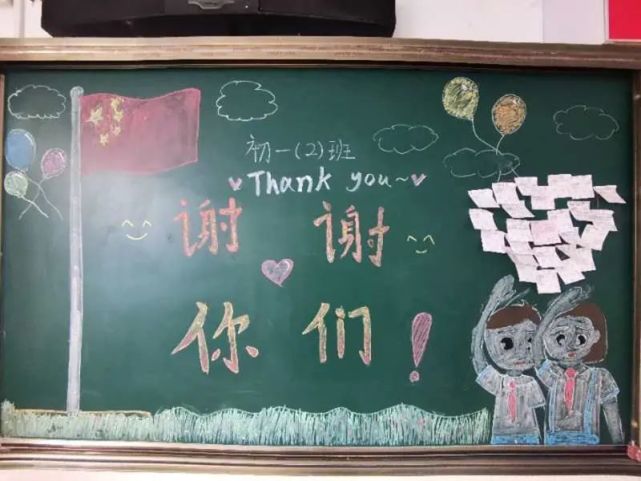 初一(2)班
Thank you~
谢谢
你们!